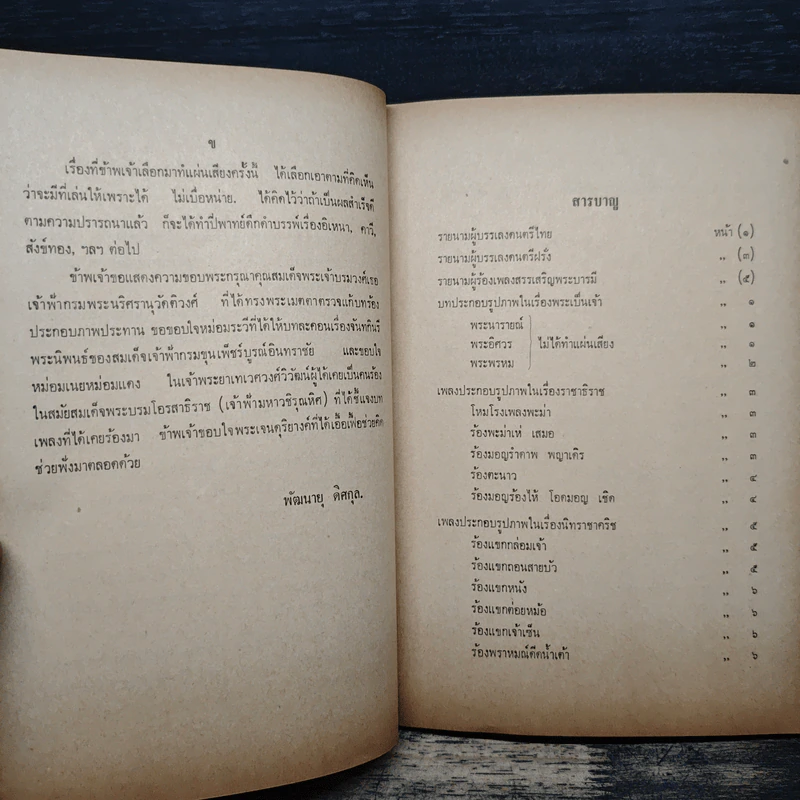 ข
เรื่องที่ข้าพเจ้าเลือกมาทำแผ่นเสียงครั้งนี้ ได้เลือกเอาตามที่คิดเห็น
ว่าจะมีที่เล่นให้เพราะได้ ไม่เบื่อหน่าย. ได้คิดไว้ว่าถ้าเป็นผลสำเร็จดี
ตามความปรารถนาแล้ว ก็จะได้ทำปี่พาทย์ดึกดำบรรพ์เรื่องอิเหนา, คาวี,
สังข์ทอง, ฯลฯ ต่อไป
ข้าพเจ้าขอแสดงความขอบพระกรุณาคุณสมเด็จพระเจ้าบรมวงศ์เธอ
เจ้าฟ้ากรมพระนริศรานุวัดติวงศ์ ที่ได้ทรงพระเมตตาตรวจแก้บทร้อง
ประกอบภาพประทาน ขอขอบใจหม่อมระวีที่ได้ให้บทละคอนเรื่องจันทกินรี
พระนิพนธ์ของสมเด็จเจ้าฟ้ากรมขุนเพ็ชร์บูรณ์อินทราชัย และขอบใจ
หม่อมเนยหม่อมแดง ในเจ้าพระยาเทเวศวงศ์วิวัฒน์ผู้ได้เคยเป็นคนร้อง
ในสมัยสมเด็จพระบรมโอรสาธิราช (เจ้าฟ้ามหาวชิรุณหิศ) ที่ได้ชี้แจงบท
เพลงที่ได้เคยร้องมา ข้าพเจ้าขอบใจพระเจนดุริยางค์ที่ได้เอื้อเฟื้อช่วยคิด
ช่วยฟังมาตลอดด้วย
พัฒนายุ ดิศกุล.
๑
สารบาญ
รายนามผู้บรรเลงดนตรีไทย หน้า (๑)
รายนามผู้บรรเลงดนตรีฝรั่ง ,, (๓)
รายนามผู้ร้องเพลงสรรเสริญพระบารมี ,, (๕)
บทประกอบรูปภาพในเรื่องพระเป็นเจ้า ,, ๑
พระนารายณ์ ,, ๑
พระอิศวร ไม่ได้ทำแผ่นเสียง ,, ๑
พระพรหม ,, ๒
เพลงประกอบรูปภาพในเรื่องราชาธิราช ,, ๓
โหมโรงเพลงพะม่า ,, ๓
ร้องพะม่าเห่ เสมอ ,, ๓
ร้องมอญรำดาพ พญาเดิร ,, ๓
ร้องตะนาว ,, ๔
ร้องมอญร้องไห้ โอดมอญ เชิด ,, ๔
เพลงประกอบรูปภาพในเรื่องนิทราชาคริช ,, ๕
ร้องแขกกล่อมเจ้า ,, ๕
ร้องแขกถอนสายบัว ,, ๕
ร้องแขกหนัง ,, ๖
ร้องแขกต่อยหม้อ ,, ๖
ร้องแขกเจ้าเซ็น ,, ๖
ร้องพราหมณ์ดีดน้ำเต้า ,, ๖